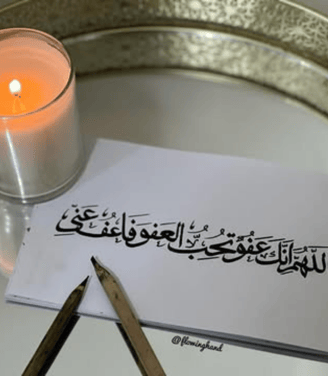 اللَّهُمَّ إِنَّكَ عَفُوٌّ تُحِبُّ العَفْوَ فَاعْفُ عَنِّي
@flowinghand